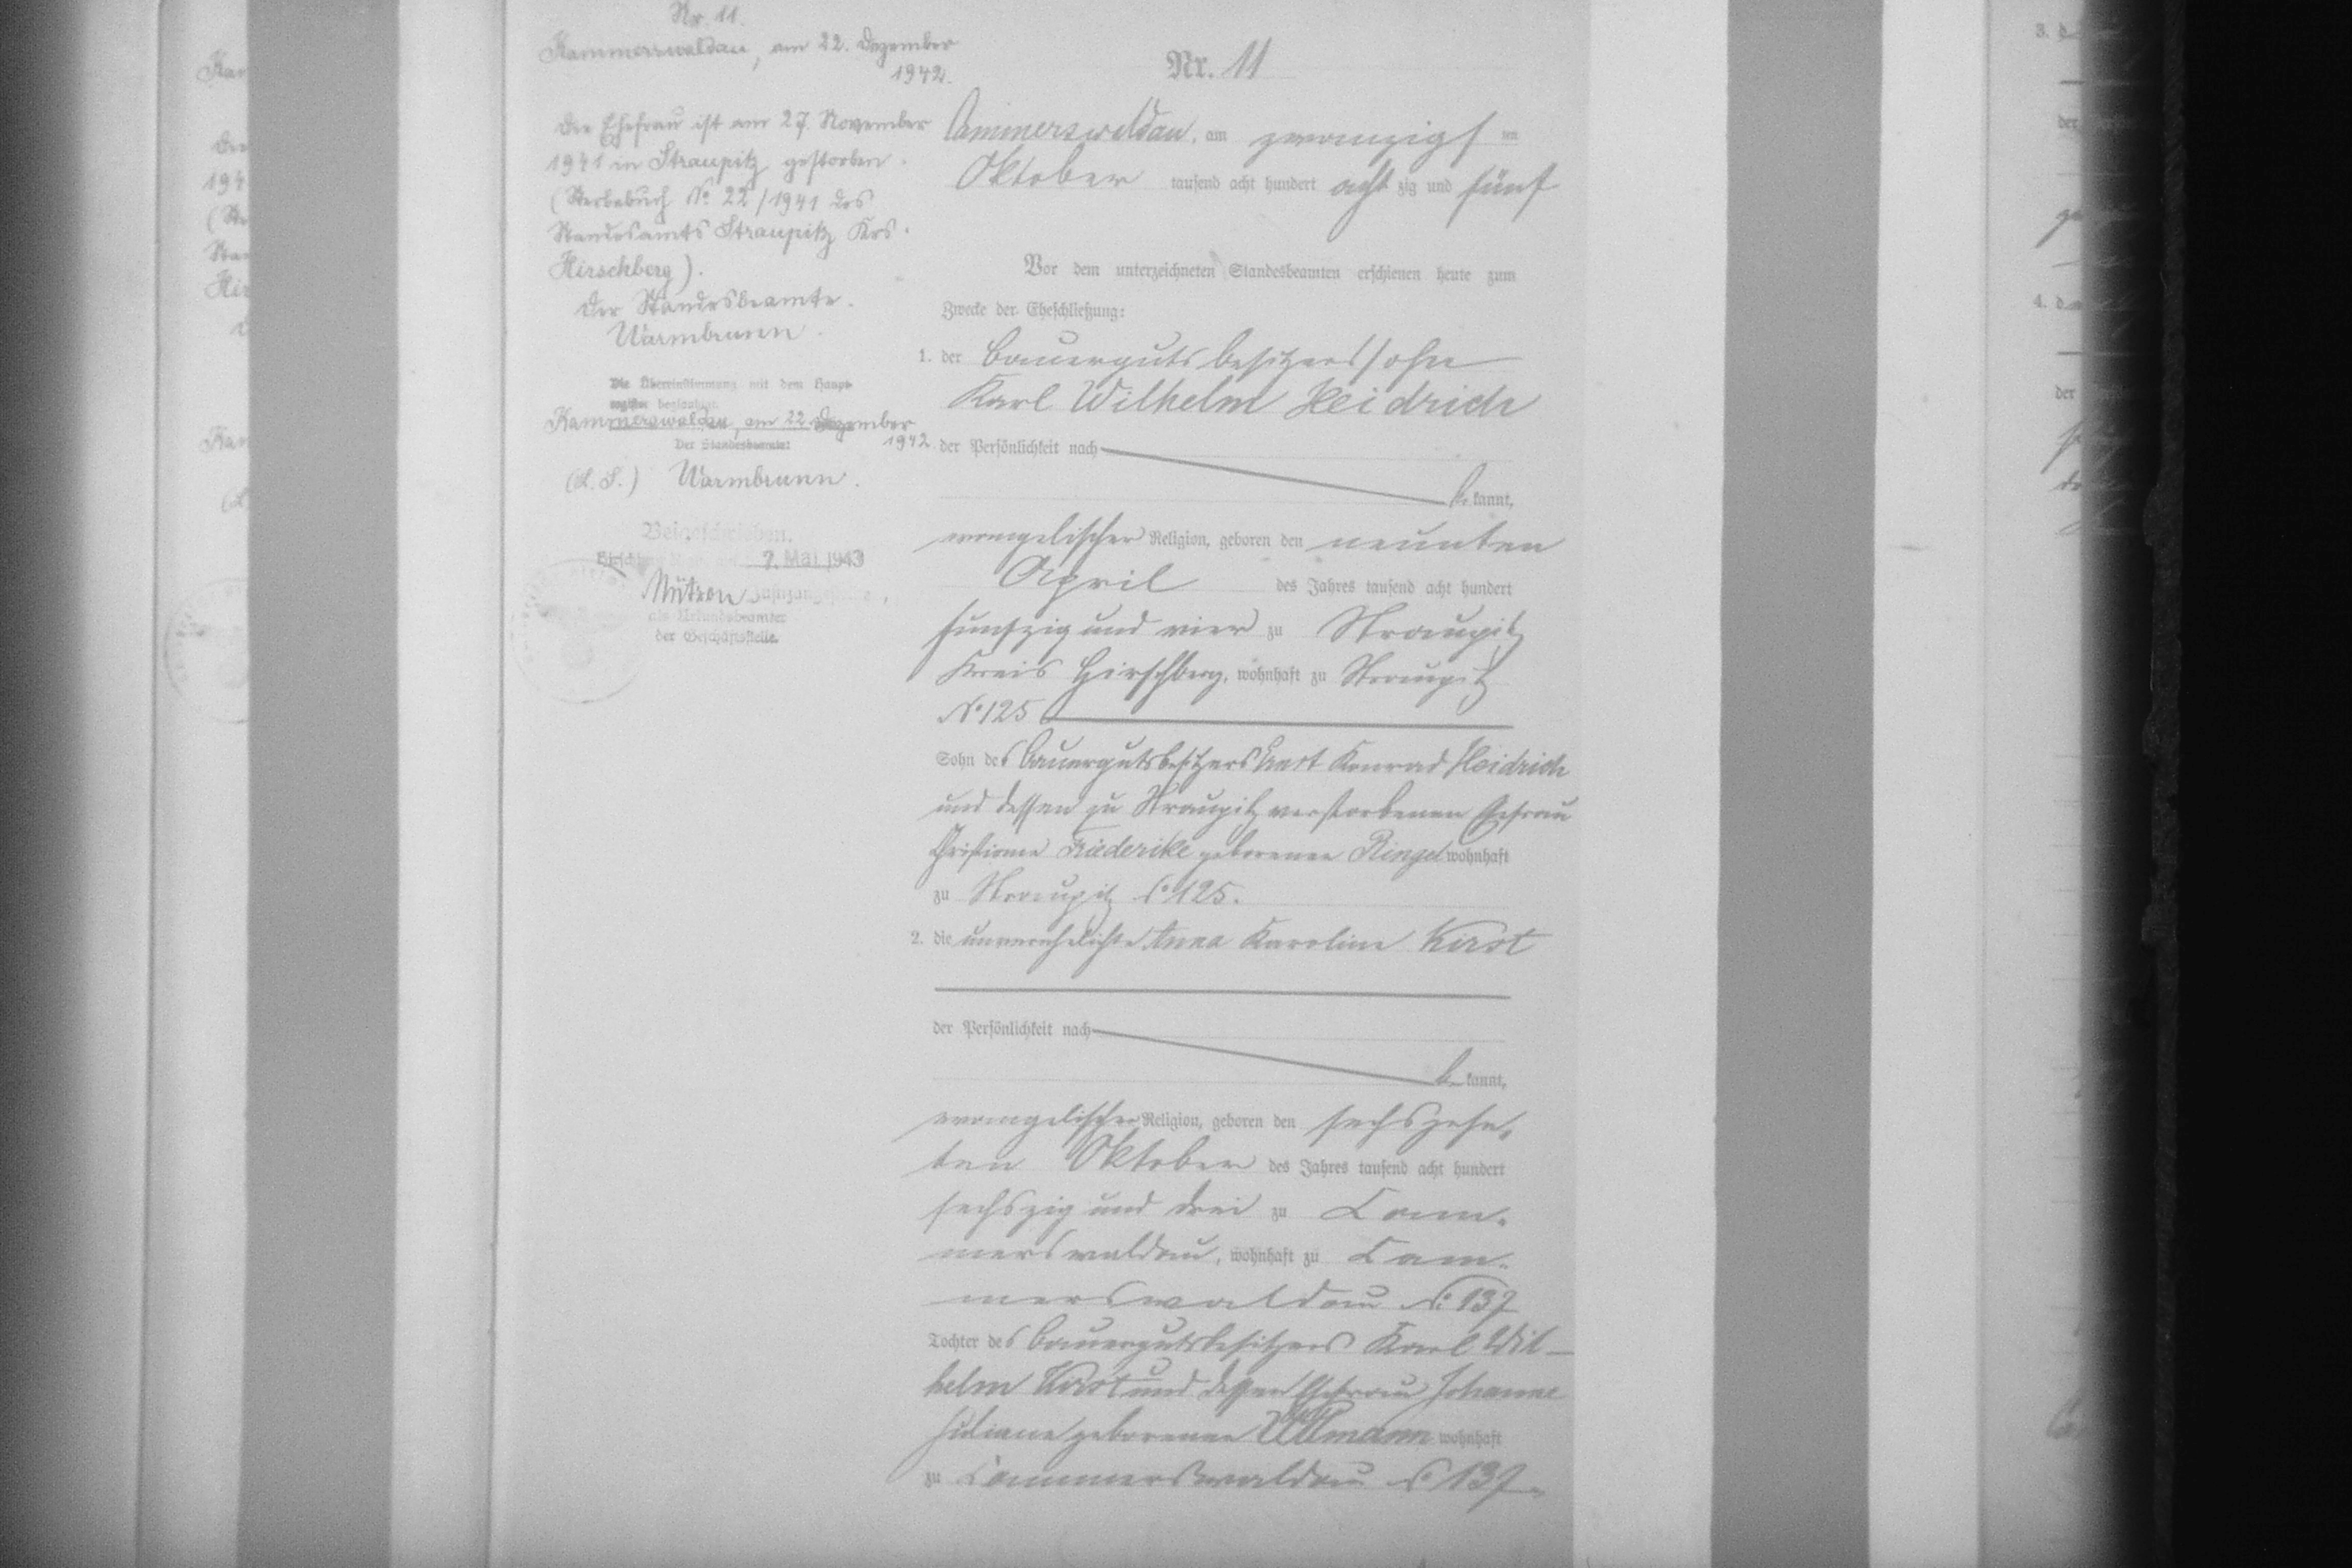 Nr. 11.
Kammerswaldau, am 22. Dezember
1942.
Die Ehefrau ist am 27. November
1941 in Straupitz gestorben.
(Sterbebuch No 22/1941 des
Standesamts Straupitz Krs.
Hirschberg).
Der Standesbeamte.
Warmbrunn.
Die Übereinstimmung mit dem Haupt-
register beglaubigt.
Kammerswaldau, am 22. Dezember
1942
Der Standesbeamte:
(L. S.) Warmbrunn.
Beigeschrieben.
7. Mai 1943
als Urkundsbeamter
der Geschäftsstelle.
Nr. 11
Cammerswaldau, am zwanzigsten
Oktober tausend acht hundert achtzig und fünf
Vor dem unterzeichneten Standesbeamten erschienen heute zum
Zwecke der Eheschließung:
1. der Bauergutsbesitzerssohn
Karl Wilhelm Heidrich
der Persönlichkeit nach
bekannt,
evangelischer Religion, geboren den neunten
April des Jahres tausend acht hundert
funfzig und vier zu Straupitz
Kreis Hirschberg, wohnhaft zu Straupitz
No 125
Sohn des Bauergutsbesitzers Konrad Heidrich
und dessen zu Straupitz verstorbenen Ehefrau
Christiane Friederike geborenen Ringel wohnhaft
zu Straupitz No 125.
2. die unverehelichte Anna Karoline Kirst
der Persönlichkeit nach
bekannt,
evangelischer Religion, geboren den sechszehn-
ten Oktober des Jahres tausend acht hundert
sechszig und drei zu Cam-
merswaldau, wohnhaft zu Cam-
merswaldau No 137
Tochter des Bauergutsbesitzers Karl Wil-
helm Kirst und dessen Ehefrau Johanne
Juliane geborenen wohnhaft
zu Cammerswaldau No 137